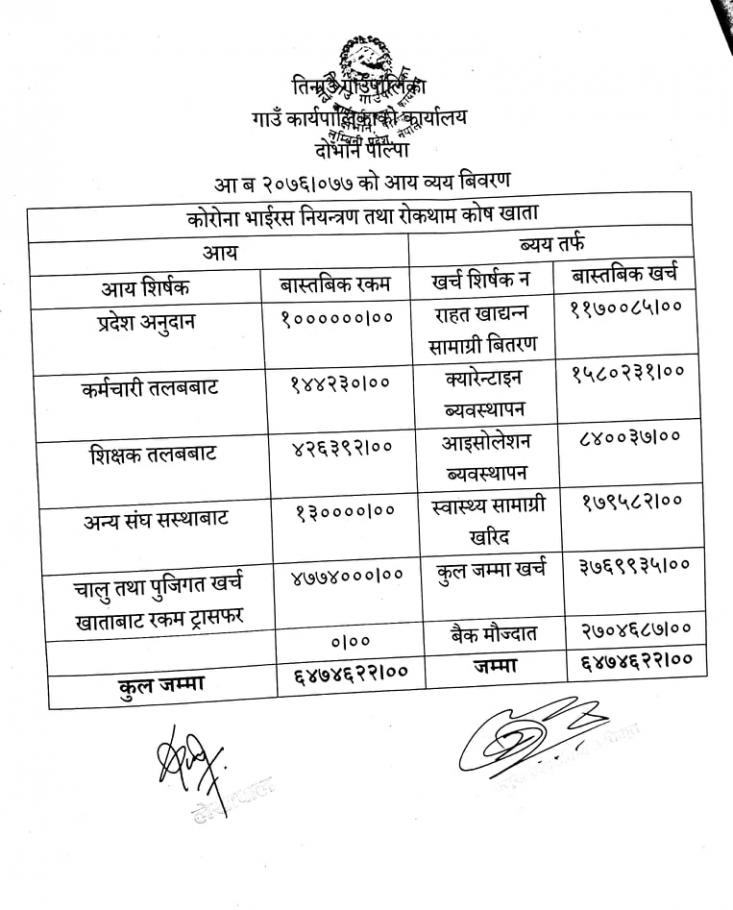 तिनाउ गाउँपालिका
गाउँ कार्यपालिकाको कार्यालय
दोभान पाल्पा
आ ब २०७६।०७७ को आय व्यय बिवरण
कोरोना भाईरस नियन्त्रण तथा रोकथाम कोष खाता
आय ब्यय तर्फ
आय शिर्षक बास्तबिक रकम खर्च शिर्षक न बास्तबिक खर्च
प्रदेश अनुदान १००००००।०० राहत खाद्यन्न ११७००८५।००
सामाग्री बितरण
कर्मचारी तलबबाट १४४२३०।०० क्यारेन्टाइन १५८०२३१।००
ब्यवस्थापन
शिक्षक तलबबाट ४२६३९२।०० आइसोलेशन ८४००३७।००
ब्यवस्थापन
अन्य संघ सस्थाबाट १३००००।०० स्वास्थ्य सामाग्री १७९५८२।००
खरिद
चालु तथा पुजिगत खर्च ४७७४०००।०० कुल जम्मा खर्च ३७६९९३५।००
खाताबाट रकम ट्रासफर
०।०० बैक मौज्दात २७०४६८७।००
कुल जम्मा ६४७४६२२।०० जम्मा ६४७४६२२।००
लेखापाल